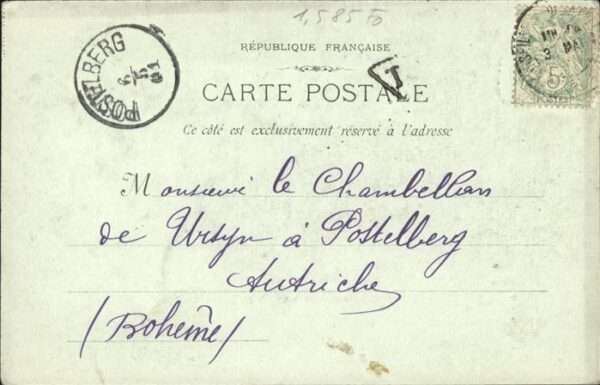 1,585 Fo
RÉPUBLIQUE FRANÇAISE
CARTE POSTALE
Ce côté est exclusivement réservé à l'adresse
POSTELBERG
T
5
Monsieur le Chambellan
de Ursyn à Postelberg
Autriche
(Bohême)